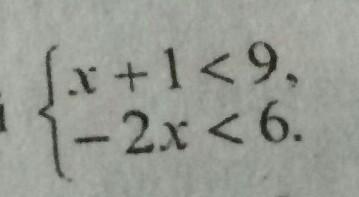 x + 1 < 9,
− 2x < 6.